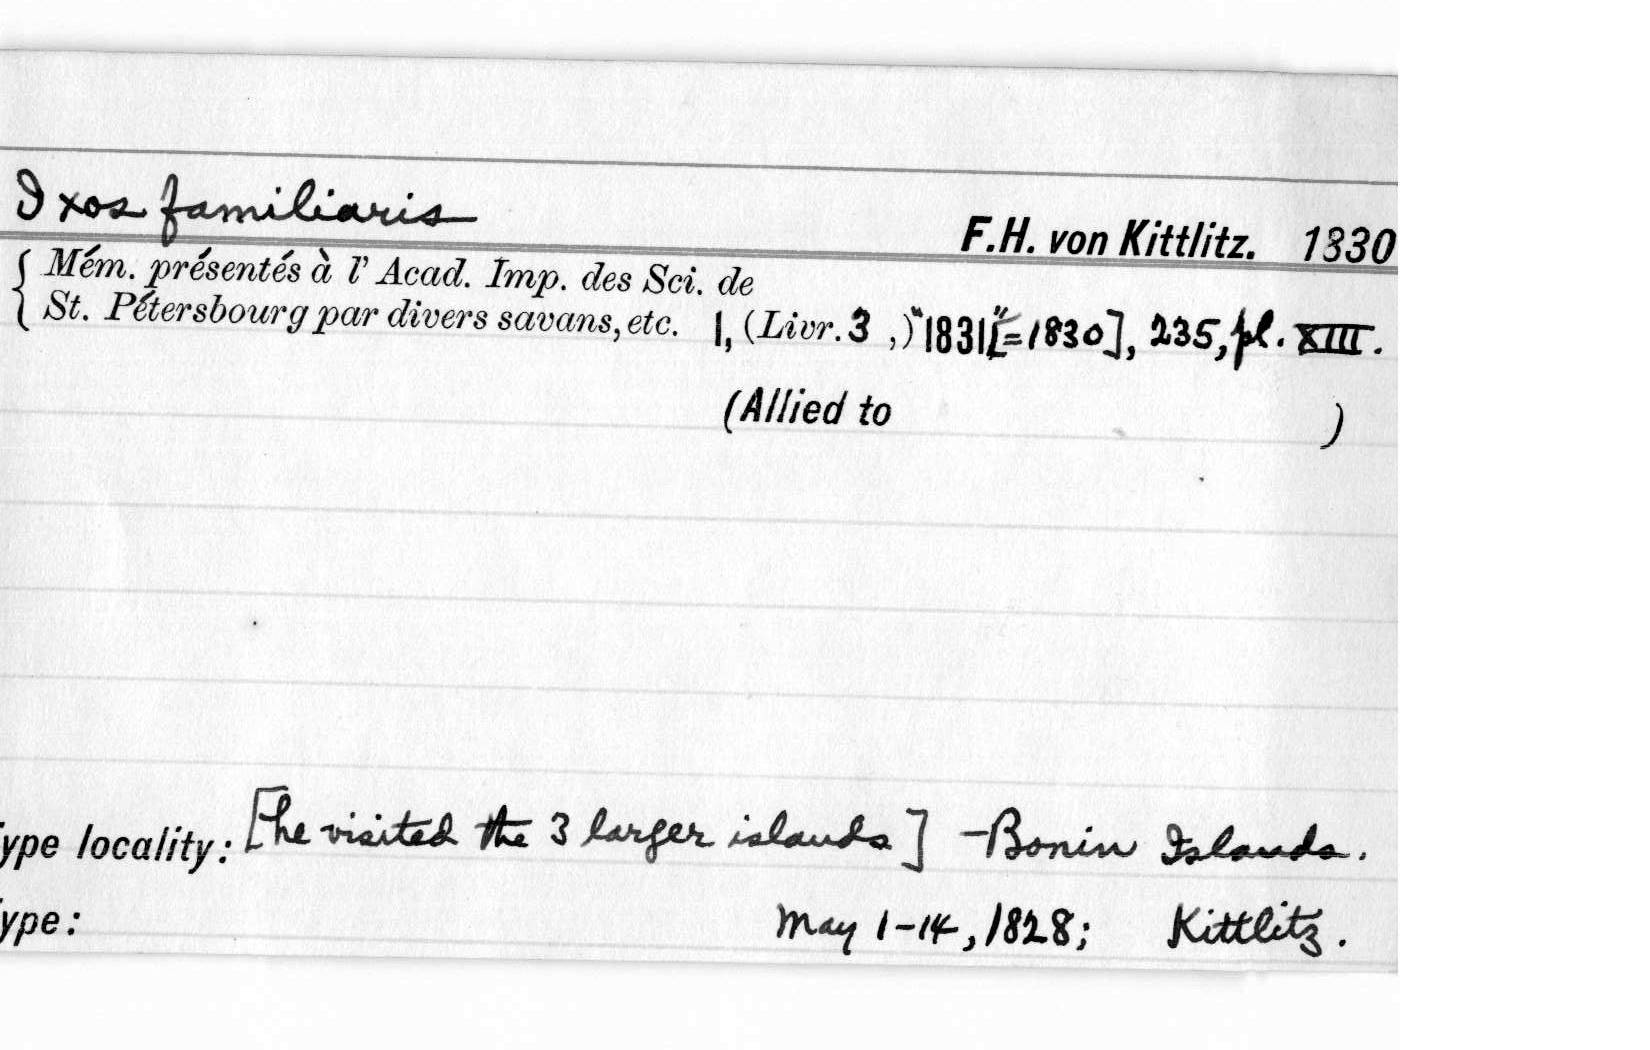 Ixos familiaris
F.H. von Kittlitz. 1830
Mém. présentés à l' Acad. Imp. des Sci. de
St. Pétersbourg par divers savans, etc. 1, (Livr. 3 ,) "1831" [=1830], 235, pl. XIII.
(Allied to )
ype locality: [he visited the 3 larger islands] - Bonin Islands.
ype: May 1-14, 1828; Kittlitz.